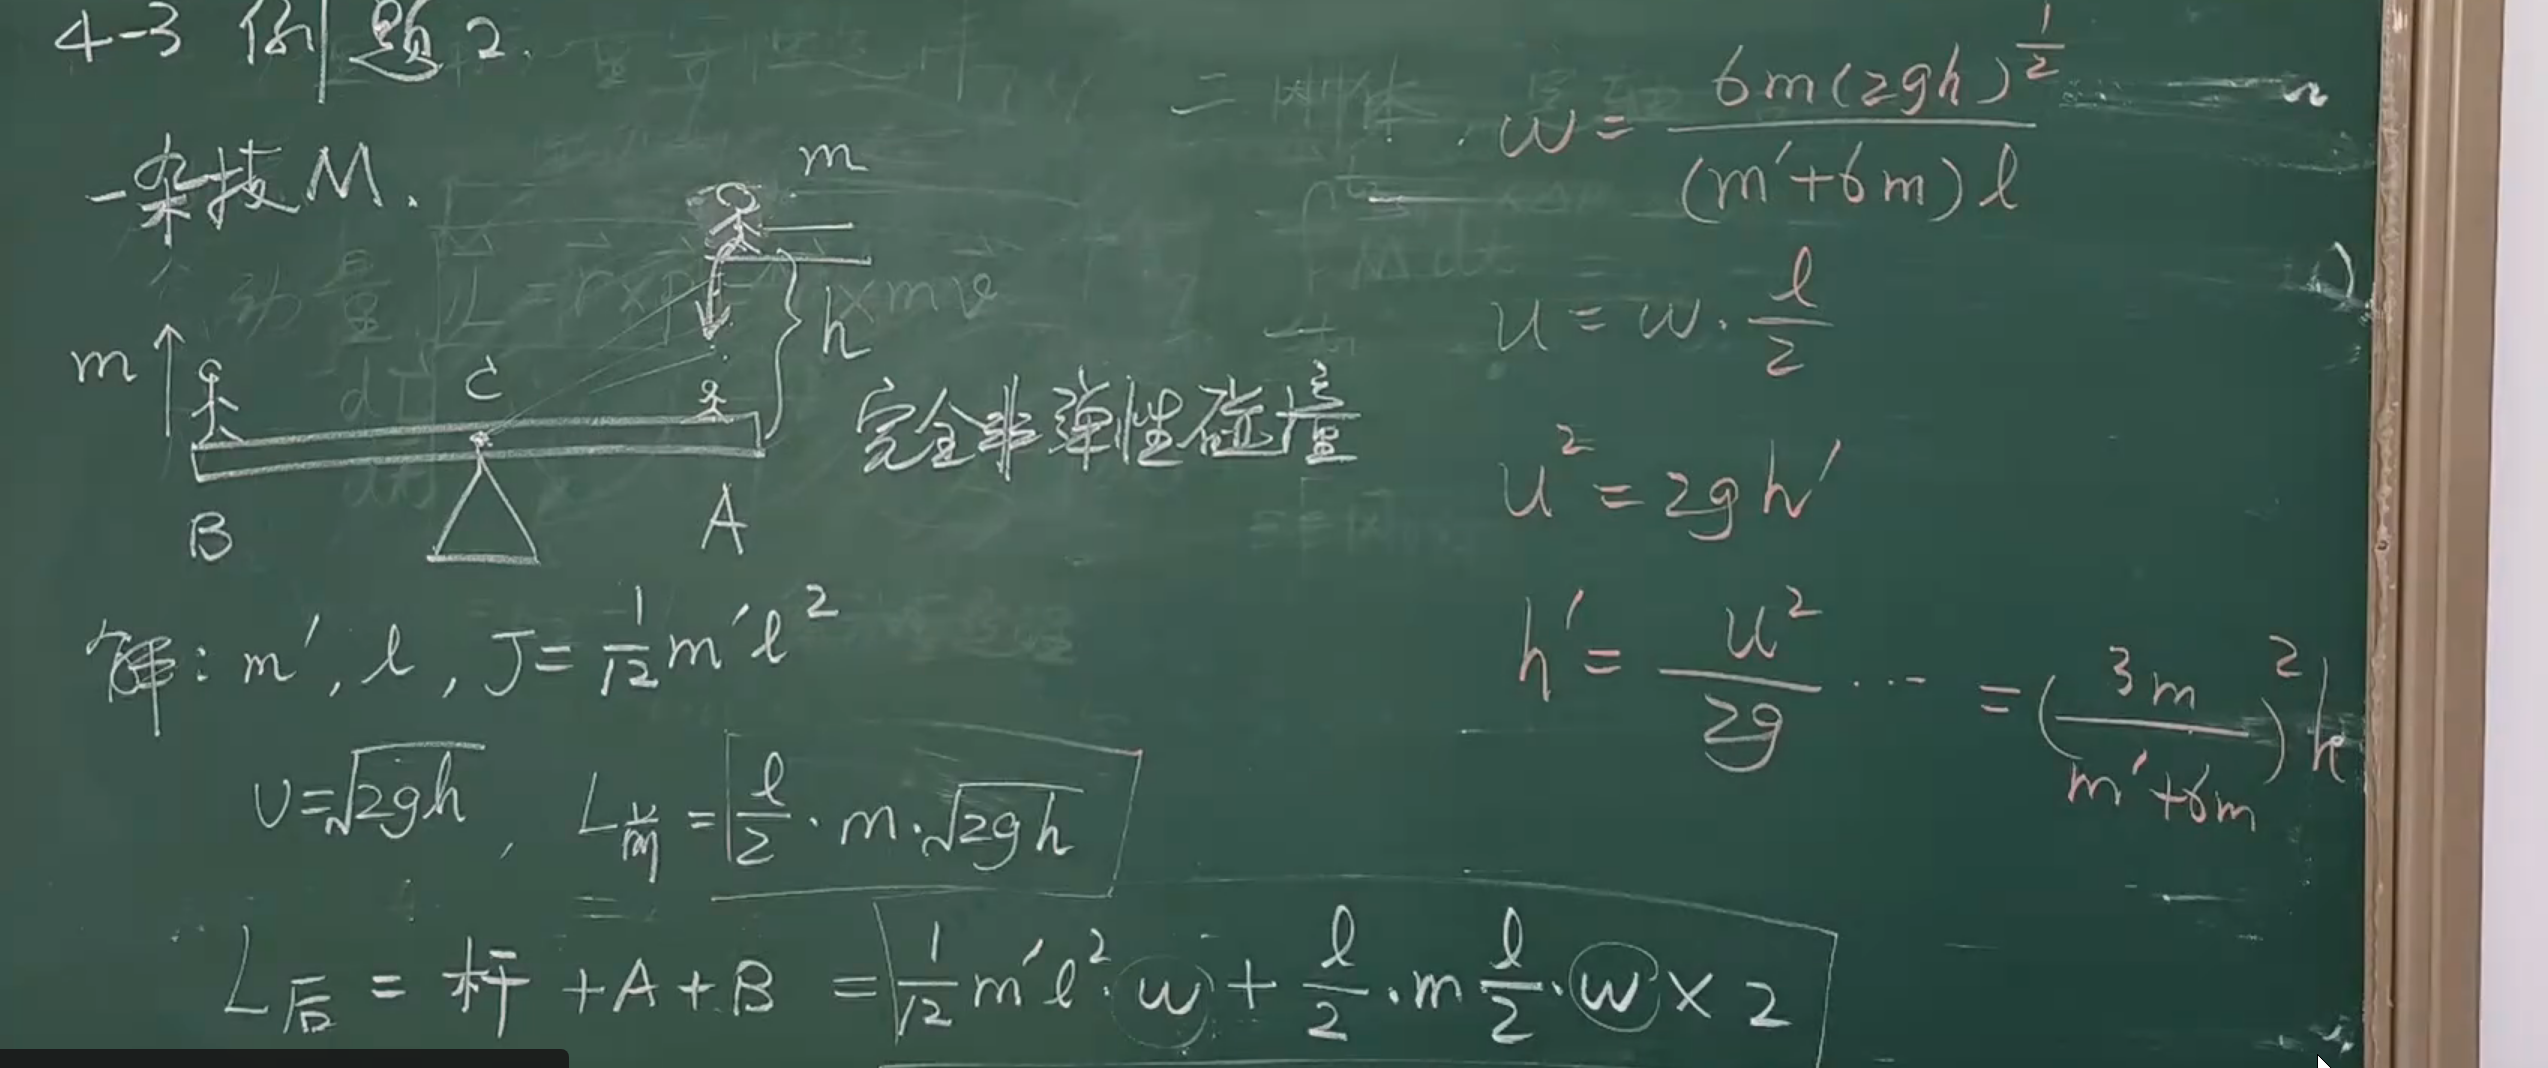 4-3 例题2.
一杂技M.
m
h
m
C
完全非弹性碰撞
B
A
解: m′, l, J=1/12 m′l²
υ=√2gh, L前 = l/2 · m · √2gh
L后 = 杆 + A + B = 1/12 m′l² · ω + l/2 · m l/2 · ω × 2
ω = 6m(2gh)^1/2 / (m′+6m)l
u = ω · l/2
u² = 2gh′
h′ = u²/2g ··· = (3m/m′+6m)² h